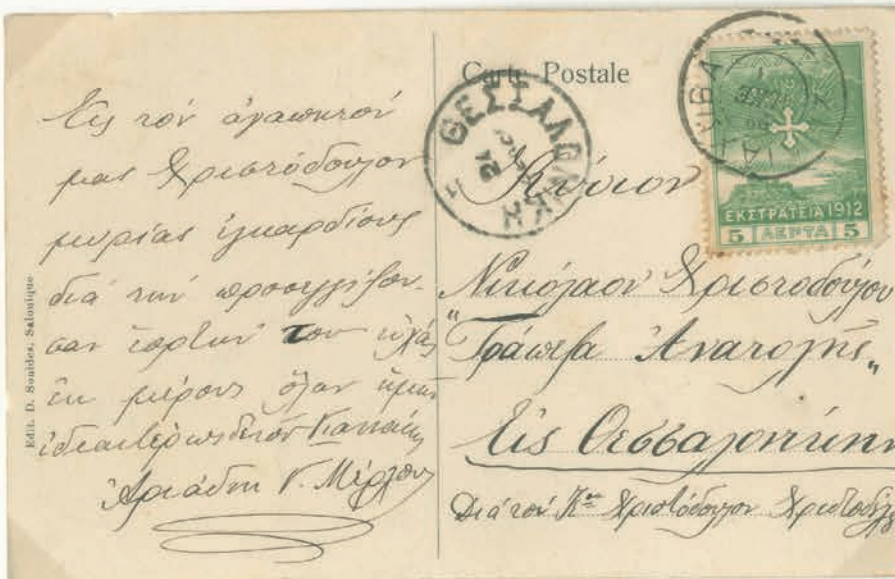 Carte Postale
Εἰς τὸν ἀγαπητόν
μας Χριστόδουλον
μυρίας ἐγκαρδίους
διὰ τὴν προσεγγίζου-
σαν ἑορτήν του εὐχάς
ἐκ μέρους ὅλων ἡμῶν
ἰδιαιτέρως δὲ τοῦ Γιαννάκη
Ἀριάδνη Γ.
Edit. D. Sonides, Salonique
ΘΕΣΣΑΛΟΝΙΚΗ
ΕΚΣΤΡΑΤΕΙΑ 1912
5 ΛΕΠΤΑ 5
Κύριον
Νικόλαον Χριστοδούλου
"Τράπεζα Ἀνατολῆς"
Εἰς Θεσσαλονίκην
Διὰ τὸν Κον Χριστόδουλον